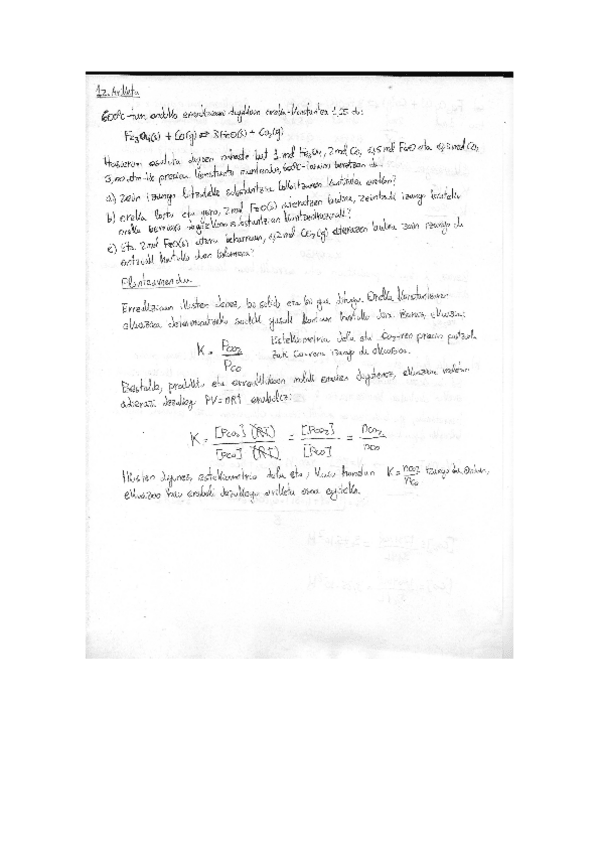 12. Ariketa
600ºC-tan, ondoko erreakzioari dagokion oreka-konstantea 1,15 da:
Fe₃O₄(s) + CO(g) ⇌ 3FeO(s) + CO₂(g)
Hasieran osatuta dagoen nahaste bat 1 mol Fe₃O₄, 2 mol CO, 0,5 mol FeO eta 0,3 mol CO₂,
presioa konstante mantenduz, 600ºC-raino berotzen da.
a) Zein izango litzateke substantzia bakoitzaren kantitatea orekan?
b) oreka lortu eta gero, 2 mol FeO(s) ateratzen badira, zeintzuk izango lirateke
oreka berriari dagozkion substantzien kontzentrazioak?
c) Eta 2 mol FeO(s) atera beharrean, 0,2 mol CO₂(g) ateratzen badira zein izango da
Planteamendua
Erreakzioan ikusten denez, bi solido eta bi gas ditugu. Oreka konstantearen
ekuazioa determinatzeko soilik gasak kontuan hartuko dira. Beraz, ekuazioa:
K = Pco₂ / Pco
Estekiometria dela eta CO₂-ren presio partziala
zati CO-rena izango da ekuazioa.
Bestalde, produktu eta erreaktiboen molak ematen dizkigutenez, ekuazioa moletan
adierazi dezakegu PV=nRT erabiliz:
K = [Pco₂] (RT) / [Pco] (RT) = [Pco₂] / [Pco] = nco₂ / nco
Ikusten dugunez, estekiometria dela eta, kasu honetan K = nco₂ / nco izango da. Orduan,
ekuazio hau erabili dezakegu ariketa osoa egiteko.